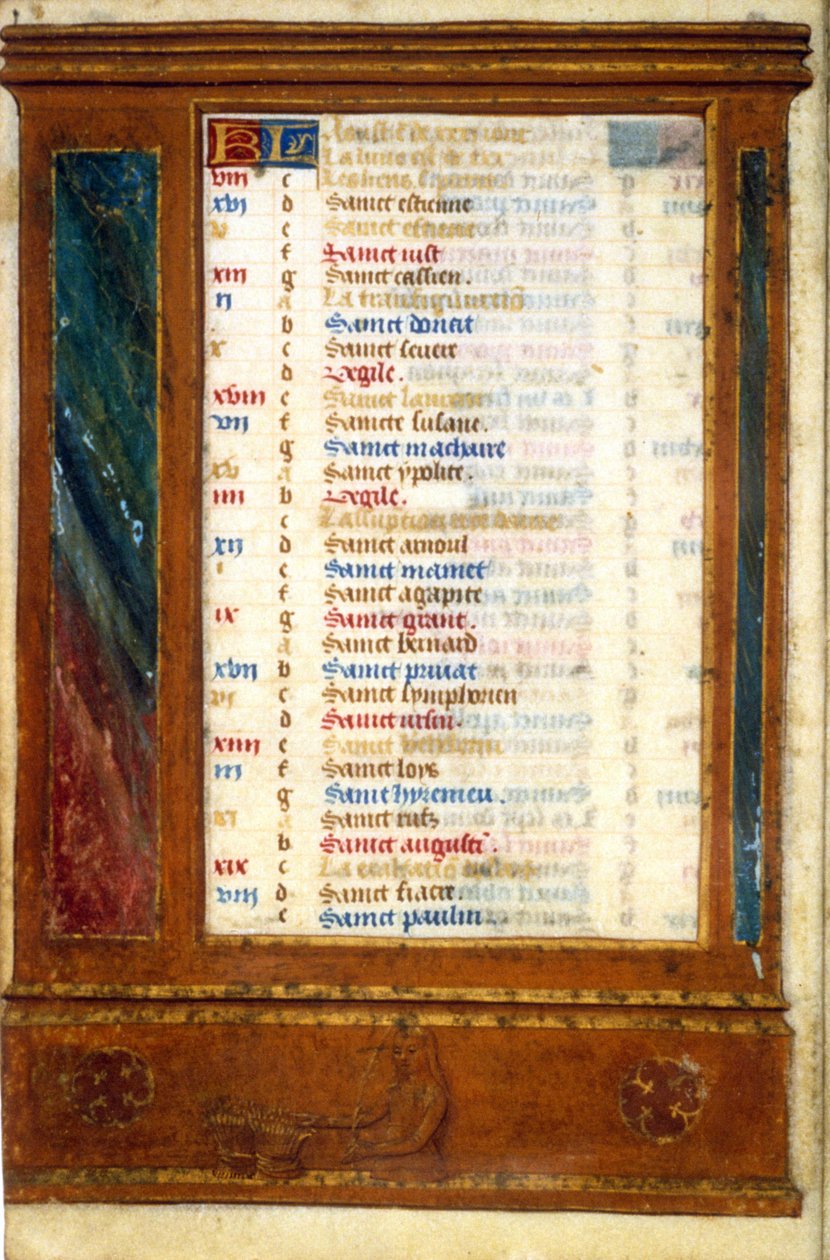 KL Aoust
La lune
viii c
xvi d Sainct estienne
v e Sainct estienne
f Sainct iust
xiii g Sainct cassien.
ii a La transfiguration
b Sainct donat
x c Sainct severe
d Vegile.
xviii e Sainct laurens
vii f Saincte susane.
g Sainct machaire
xv a Sainct ypolite.
iiii b Vegile.
c Lassumption nostre dame
xii d Sainct arnoul
i e Sainct mamet
f Sainct agapite
ix g Sainct grant.
a Sainct bernard
xvii b Sainct privat
vi c Sainct symphorien
d Sainct ursin
xiiii e Sainct
iii f Sainct loys
g Sainct hyreneu.
xi a Sainct rufz
b Sainct augustī.
xix c La
viii d Sainct fiacre.
e Sainct paulin